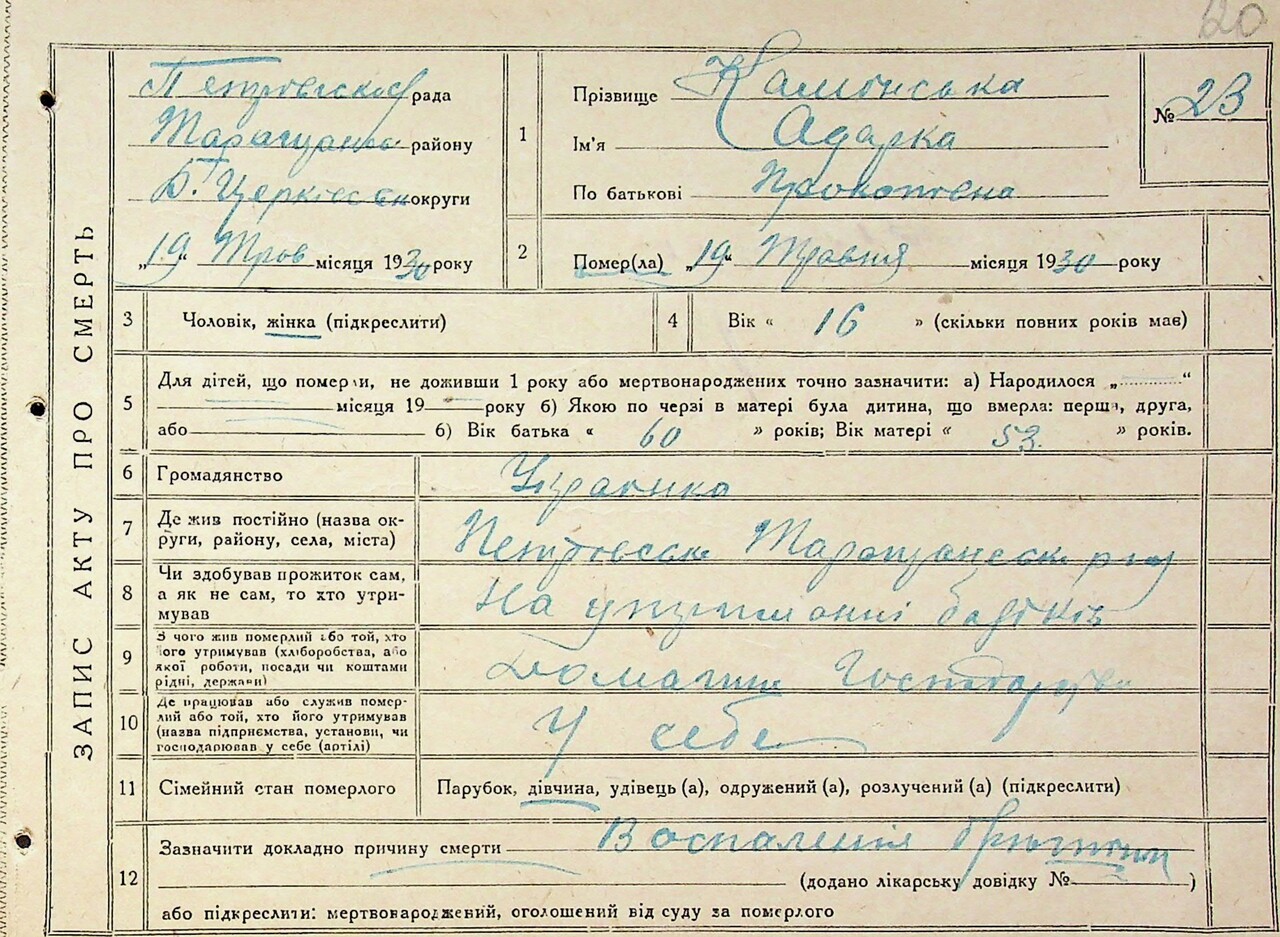 20
ЗАПИС АКТУ ПРО СМЕРТЬ
Петровська рада
Таращансь району
Б. Церківськ округи
„19“ Трав місяця 1930 року
1
Прізвище Камінська
Ім'я Адарка
По батькові Прокопівна
№ 23
2
Помер(ла) „19“ Травня місяця 1930 року
3 Чоловік, жінка (підкреслити)
4 Вік « 16 » (скільки повних років мав)
5
Для дітей, що померли, не доживши 1 року або мертвонароджених точно зазначити: а) Народилося „ “
місяця 19 року б) Якою по черзі в матері була дитина, що вмерла: перша, друга,
або б) Вік батька « 60 » років; Вік матері « 53. » років.
6 Громадянство Українка
7
Де жив постійно (назва ок-
руги, району, села, міста)
Петровськ Таращанськ рай
8
Чи здобував прожиток сам,
а як не сам, то хто утри-
мував
На утриманні батьків
9
З чого жив померлий або той, хто
його утримував (хліборобства, або
якої роботи, посади чи коштами
рідні, держави)
Домашнє Господарство
10
Де працював або служив помер-
лий або той, хто його утримував
(назва підприємства, установи, чи
господарював у себе (артілі)
У себе
11 Сімейний стан померлого Парубок, дівчина, удівець (а), одружений (а), розлучений (а) (підкреслити)
12
Зазначити докладно причину смерти Воспаленія
(додано лікарську довідку № )
або підкреслити: мертвонароджений, оголошений від суду за померлого